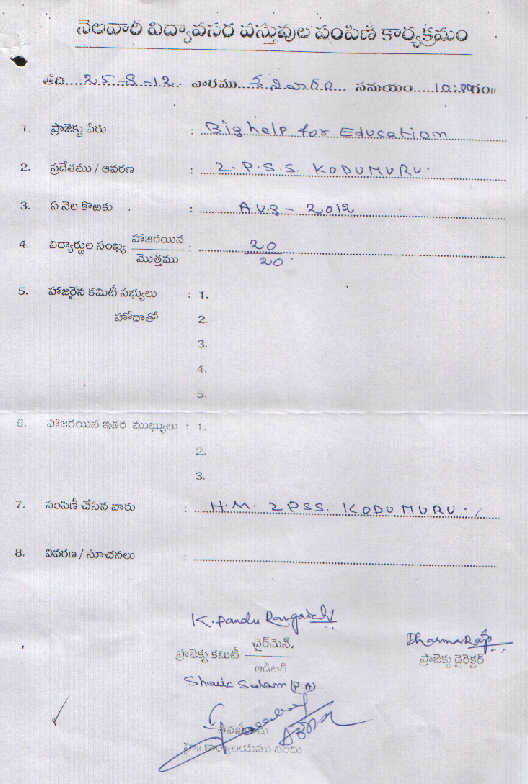 నెలవారీ విద్యావసర వస్తువుల పంపిణి కార్యక్రమం
తేది 25-8-12 వారము శనివారం సమయం 10:30గం॥
1. ప్రాజెక్టు పేరు : Big help for Education
2. ప్రదేశము / ఆవరణ : Z.P.S.S. KODUMURU.
3. ఏ నెల కొఱకు : AUG - 2012
4. విద్యార్ధుల సంఖ్య హాజరయిన / మొత్తము : 20 / 20
5. హాజరైన కమిటీ సభ్యులు : 1.
హోదాతో 2.
3.
4.
5.
6. హాజరయిన ఇతర ముఖ్యులు : 1.
2.
3.
7. పంపిణీ చేసిన వారు : H.M. ZPSS. KODUMURU.
8. వివరణ / సూచనలు :
K. Pandu Ranga
ప్రాజెక్టు కమిటీ చైర్‌మెన్. Dharma Raju
ఆడిటర్ ప్రాజెక్టు డైరెక్టర్